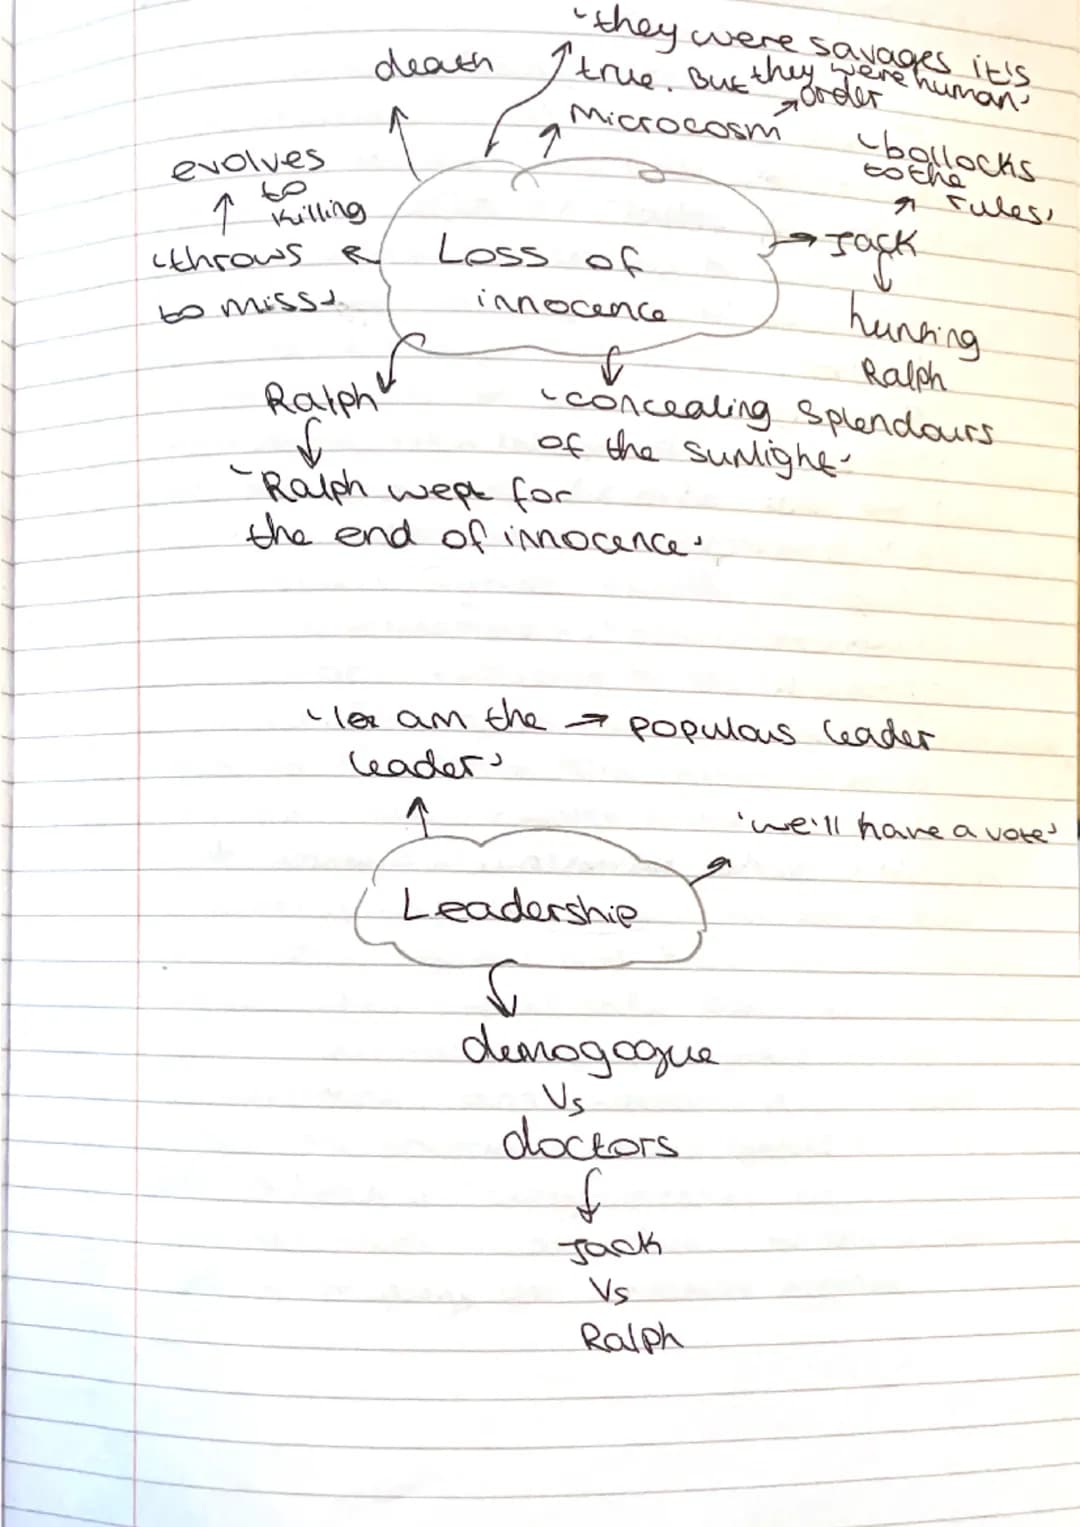 'they were savages it's
true. But they were human'
death
Microcosm
order
evolves
to
killing
'bollocks
to the
rules'
'throws
to miss'
Loss of
innocence
Jack
hunting
Ralph
Ralph
'concealing splendours
of the sunlight'
'Ralph wept for
the end of innocence'
am the
leader'
populous leader
'we'll have a vote'
Leadership
demogogue
Vs
doctors
Jack
Vs
Ralph